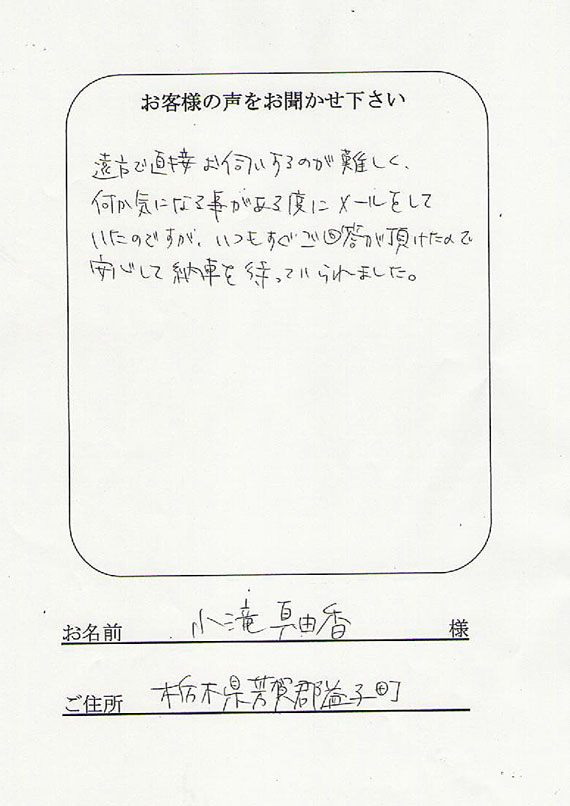 お客様の声をお聞かせ下さい
遠方で直接お伺いするのが難しく、
何か気になる事がある度にメールをして
いたのですが、いつもすぐご回答が頂けたので
安心して納車を待っていられました。
お名前 小滝 真由香 様
ご住所 栃木県芳賀郡益子町